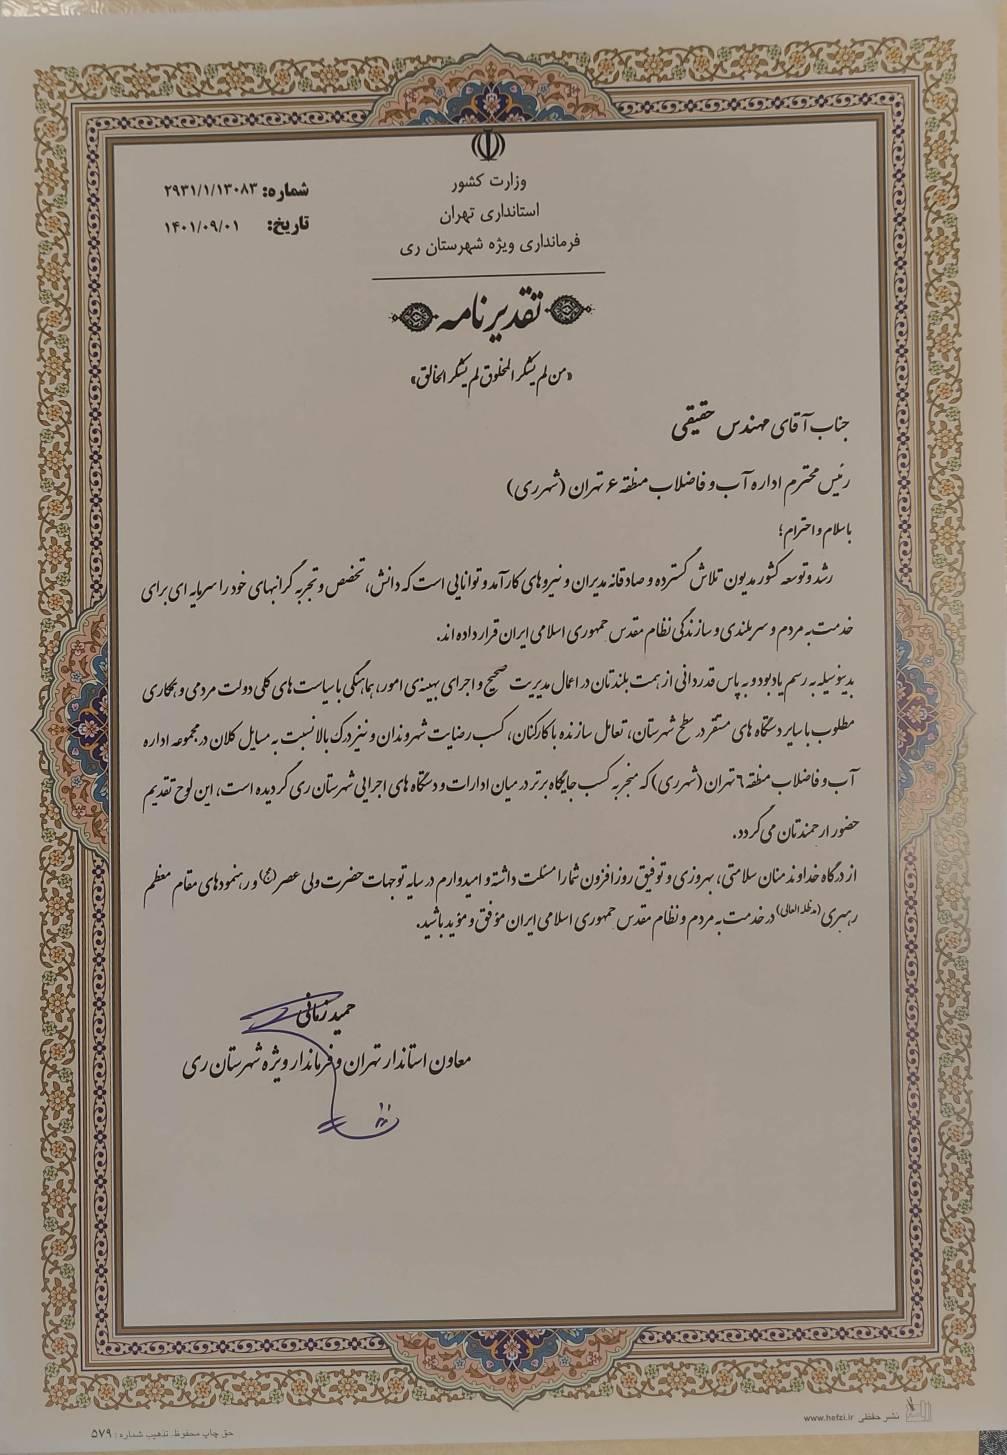 وزارت کشور
استانداری تهران
فرمانداری ویژه شهرستان ری
شماره: ۲۹۳۱/۱/۱۳۰۸۳
تاریخ: ۱۴۰۱/۰۹/۰۱
تقدیرنامه
«من لم یشکر المخلوق لم یشکر الخالق»
جناب آقای مهندس حقیقی
رئیس محترم اداره آب و فاضلاب منطقه ۶ تهران (شهرری)
باسلام و احترام؛
رشد و توسعه کشور مدیون تلاش گسترده و صادقانه مدیران و نیروهای کارآمد و توانایی است که دانش، تخصص و تجربه گرانبهای خود را سرمایه ای برای
خدمت به مردم و سربلندی و سازندگی نظام مقدس جمهوری اسلامی ایران قرار داده اند.
بدینوسیله به رسم یادبود و به پاس قدردانی از همت بلندتان در اعمال مدیریت صحیح و اجرای بهینه ی امور، هماهنگی با سیاست های کلی دولت مردمی و همکاری
مطلوب با سایر دستگاه های مستقر در سطح شهرستان، تعامل سازنده با کارکنان، کسب رضایت شهروندان و نیز درک بالا نسبت به مسایل کلان در مجموعه اداره
آب و فاضلاب منطقه ۶ تهران (شهرری) که منجر به کسب جایگاه برتر در میان ادارات و دستگاه های اجرایی شهرستان ری گردیده است، این لوح تقدیم
حضور ارجمندتان می گردد.
از درگاه خداوند منان سلامتی، بهروزی و توفیق روزافزون شما را مسئلت داشته و امیدوارم در سایه توجهات حضرت ولی عصر (عج) و رهنمودهای مقام معظم
رهبری (مدظله العالی) در خدمت به مردم و نظام مقدس جمهوری اسلامی ایران موفق و مؤید باشید.
حمید زمانی
معاون استاندار تهران و فرماندار ویژه شهرستان ری
نشر حفظی www.hefzi.ir
حق چاپ محفوظ. تذهیب شماره: ۵۷۹